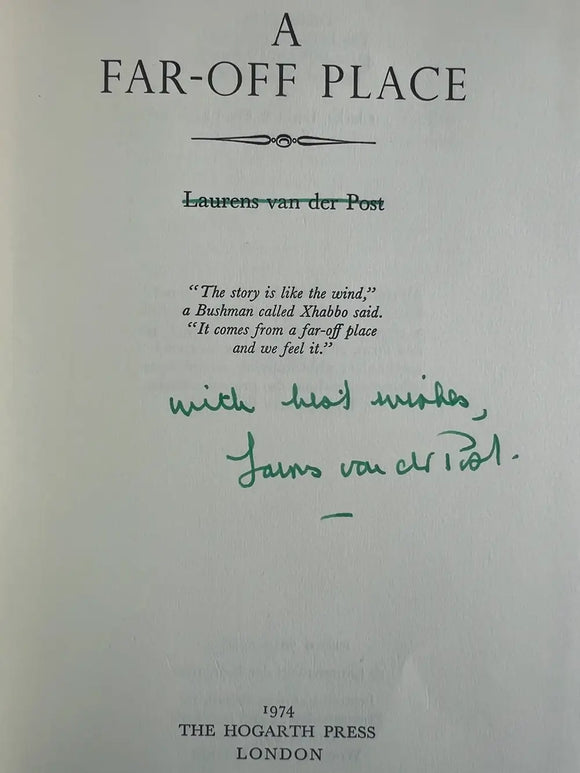 A
FAR-OFF PLACE
Laurens van der Post
“The story is like the wind,”
a Bushman called Xhabbo said.
“It comes from a far-off place
and we feel it.”
with best wishes,
Laurens van der Post.
1974
THE HOGARTH PRESS
LONDON